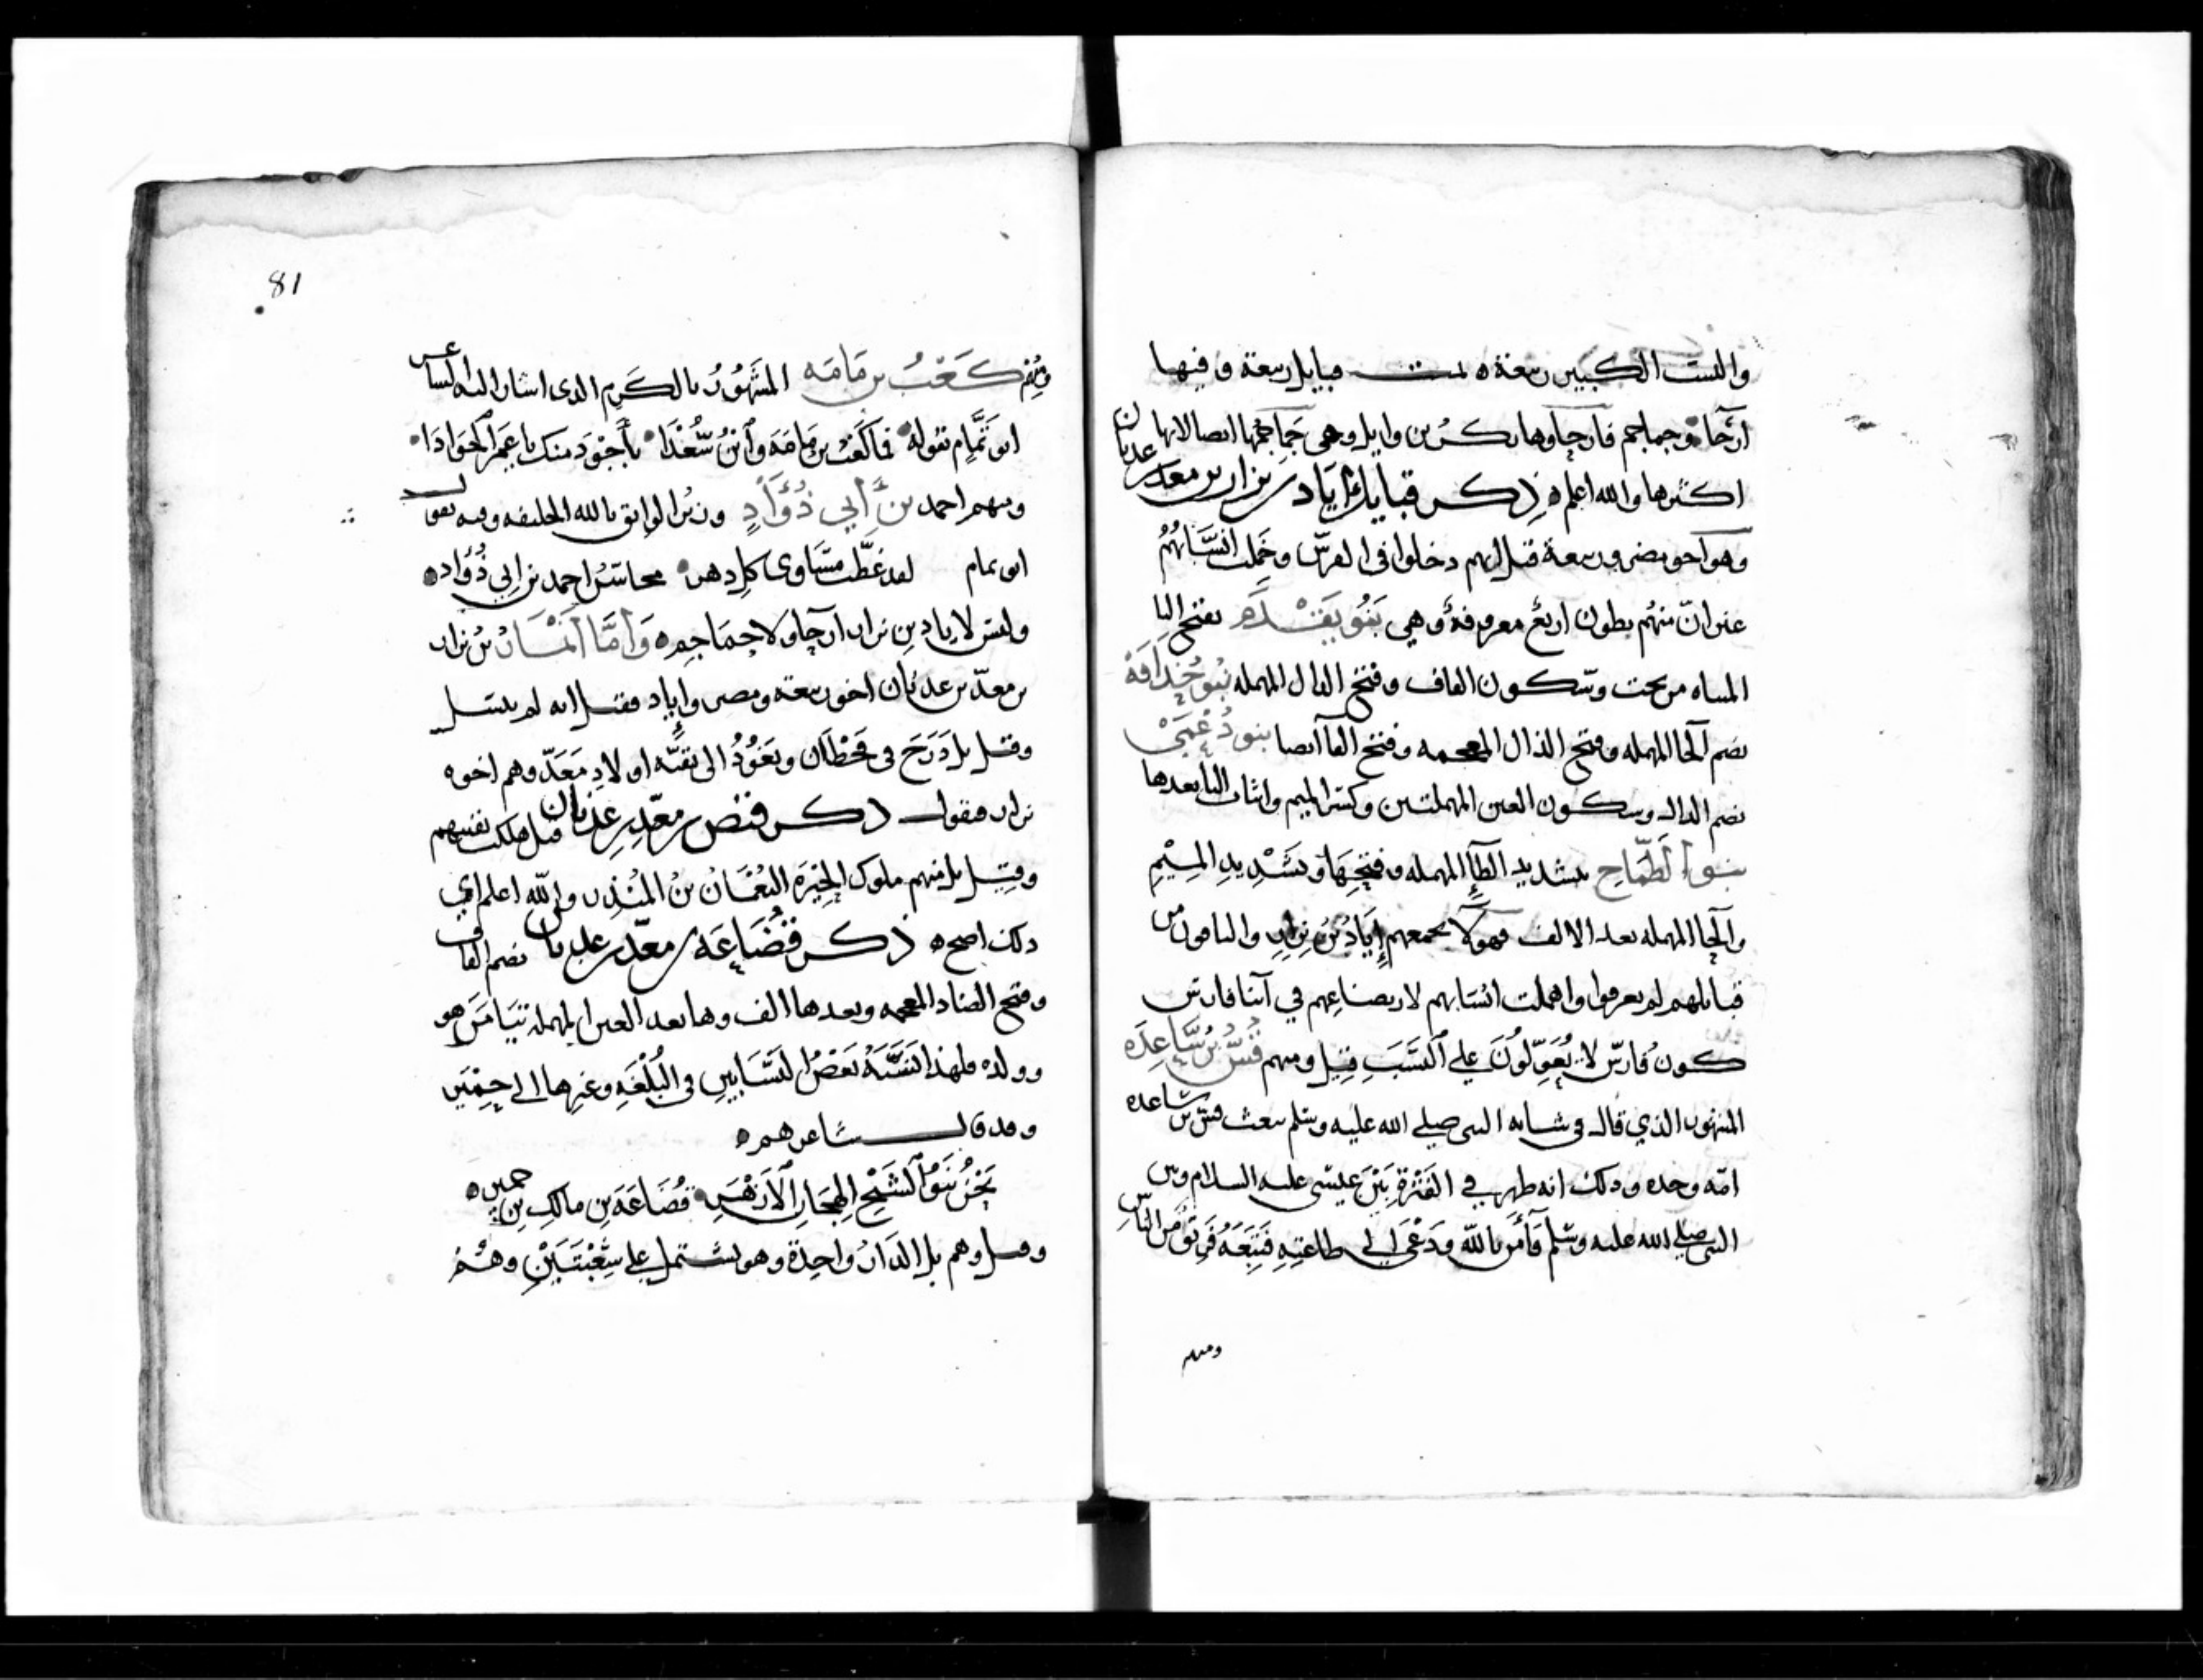 والبيت الكبير ربيعة ه تمت قبايل ربيعة وفيها
ارحا وجماجم فارحاوها بكر بن وايل وهى جماجمها ايضا لانها
اكثرها والله اعلم ه ذكر قبايل اياد بن نزار بن معد بن عدنان
وهو اخو مضر وربيعة قيل انهم دخلوا فى الفرس وخملت انسابهم
غير انّ منهم بطون اربع معروفة وهي بنو يقدم بفتح اليا
المثناه من تحت وسكون القاف وفتح الدال المهمله بنو حُذافة
بضم الحا المهمله وفتح الذال المعجمه وفتح الفا ايضا بنو دُعْمي
بضم الدال وسكون العين المهملتين وكسر الميم واثبات اليا بعدها
بنو الطمّاح بتشديد الطآ المهمله وفتحها وتشديد الميم
والحا المهمله بعد الالف فهولا يجمعهم إياد بن نزار والباقون من
قبائلهم لم يعرفوا واهملت انسابهم لاربصناعهم في ابنا فارس
كون فارس لا يعوّلون علي النسب قيل ومنهم قسّ بن ساعده
المشهور الذي قال فى شانه النبى صلى الله عليه وسلم يبعث قس بن ساعده
امّه وحده وذلك انه ظهر في الفترة بين عيسى عليه السلام وبين
النبى صلى الله عليه وسلم فآمن بالله ودعى الى طاعته فتبعه فريق من الناس
ومنهم
81
ومنهم كعب بن مامه المشهور بالكرم الذى اشار اليه الشاعر
ابو تمّام بقوله فما كعب بن مامه وابن سُعْدَا بأجود منك يا عمر الجوادا
ومنهم احمد بن أبي دُؤاد وزير الواثق بالله الخليفه وفيه يقول
ابو تمام لقد غطّت مساوى كل دهر محاسن احمد بن ابي دُؤاد ه
وليس لاياد بن نزار ارحا ولا جماجم ه وأمّا أنمار بن نزار
بن معدّ بن عدنان اخو ربيعة ومضر وإياد فقيل انه لم ينسل
وقيل بل درج فى قحطان ونعود الى بقيّه اولاد معدّ وهم اخوه
نزار فنقول ذكر قنص بن معدّ بن عدنان قيل هلكت بقيتهم
وقيل بل منهم ملوك الحيرة النعمان بن المنذر والله اعلم اي
ذلك اصح ه ذكر قضاعه بن معدّ بن عدنان بضم القاف
وفتح الضاد المعجمه وبعدها الف وها بعد العين المهمله تيامن هو
وولده فلهذا نسبه بعض النسابين فى البُلْغَه وغيرها الى حِمْيَر
وقد قال شاعرهم ه
نحن بنو الشيخ الهجان الازهر قضاعة بن مالك بن حمير ه
وقيل وهم بل الدار واحدة وهو يشتمل علي شِعْبَتَيْن وهُمُ